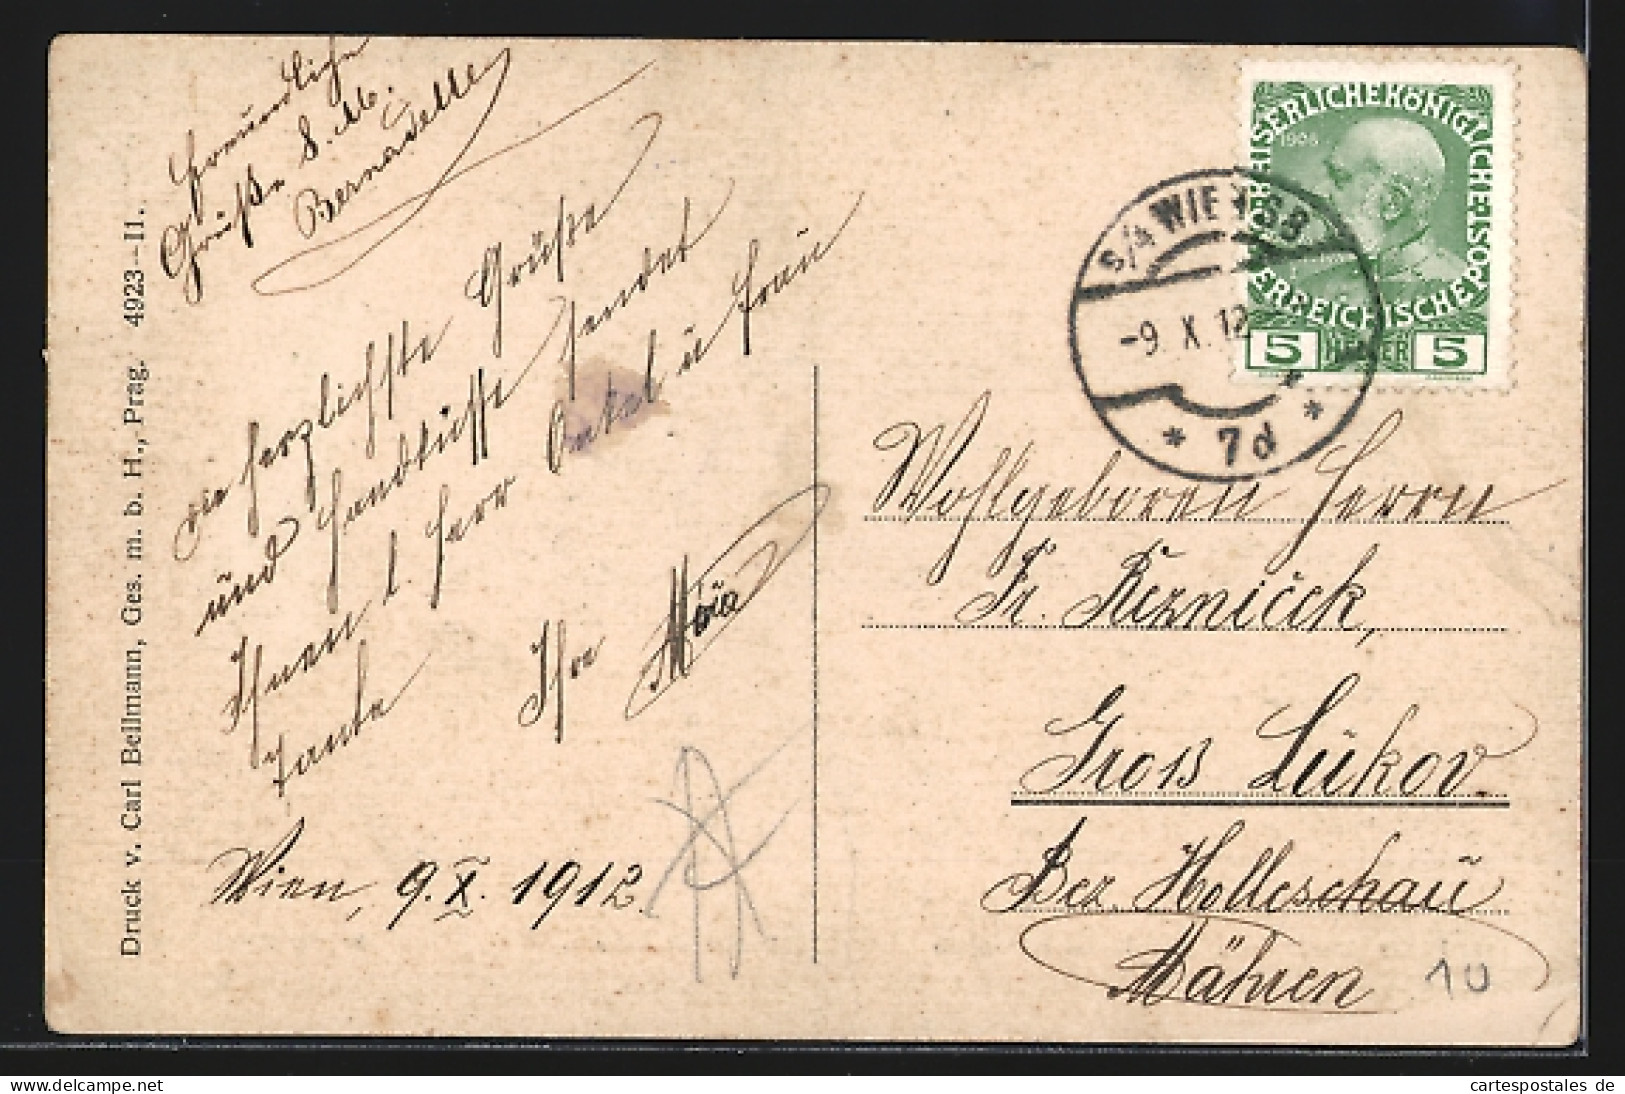 Freundliche
Grüße S. M.
Bernadette
Die herzlichste Grüße
und Handküsse sendet
Ihnen l. Herr Onkel u Frau
Tante Ihre
Wien, 9.X.1912.
Druck v. Carl Bellmann, Ges. m. b. H., Prag. 4923—11.
KAISERLICHEKÖNIGLICHE ÖSTERREICHISCHE POST
1908
5 HELLER 5
WIEN 68
-9. X. 12
* 7d *
Wohlgeboren Herrn
Fr. Řezníček,
Gross Lukov
Bez. Holleschau
Mähren
10
delcampe.net
cartespostales de